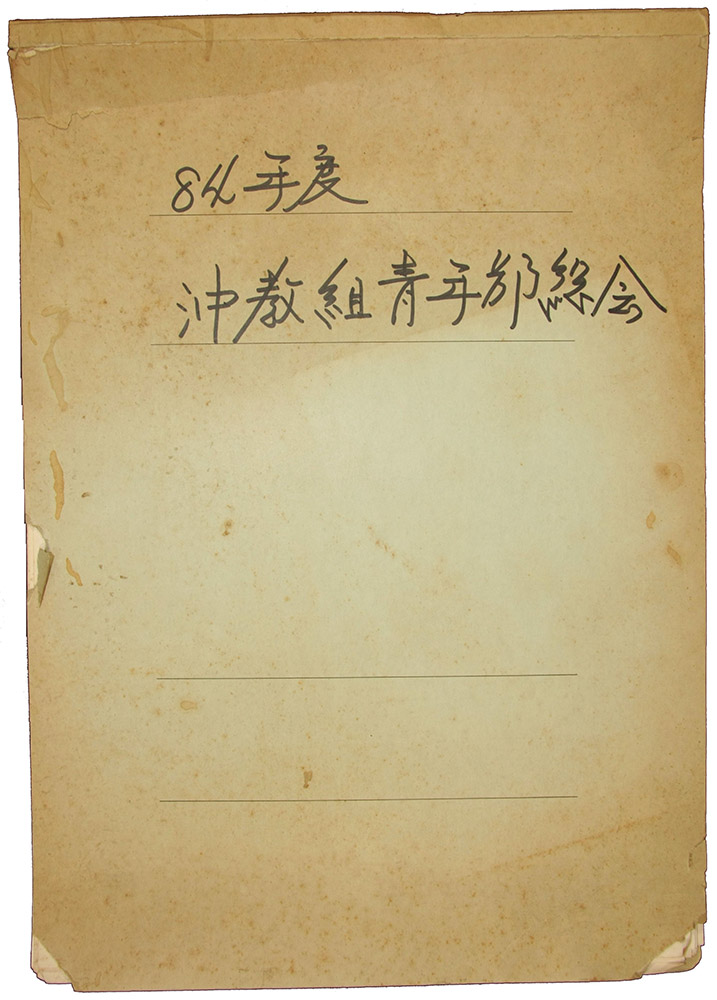 84年度
沖教組青年部総会